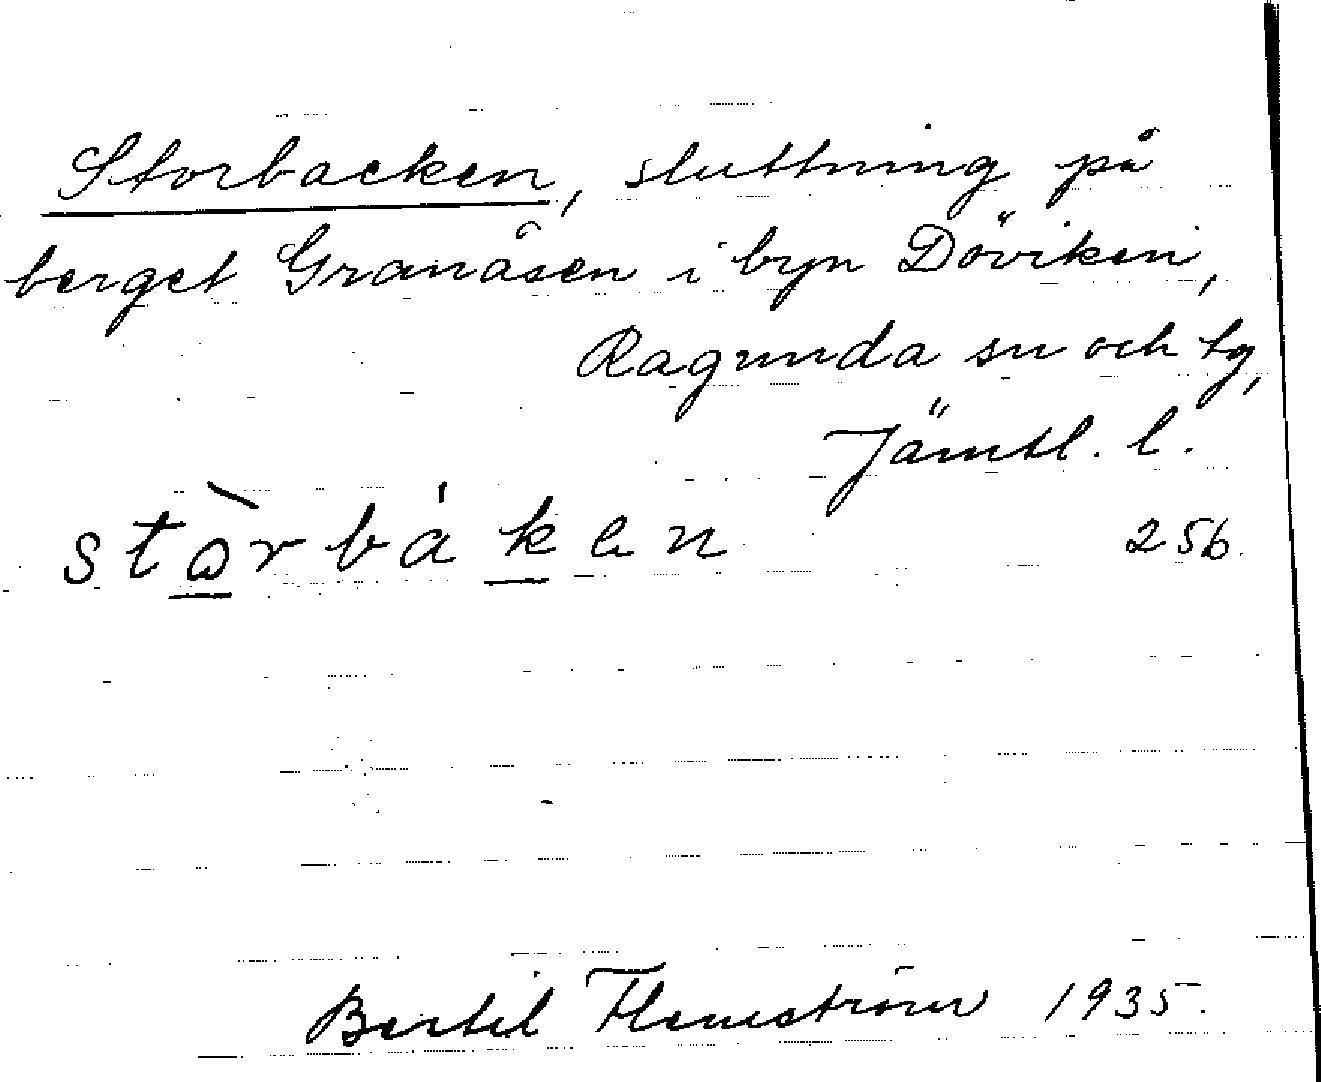 Storbacken, sluttning på
berget Granåsen i byn Döviken,
Ragunda sn och tg,
Jämtl. l.
stòrbáken 256.
Bertil Flemström 1935.